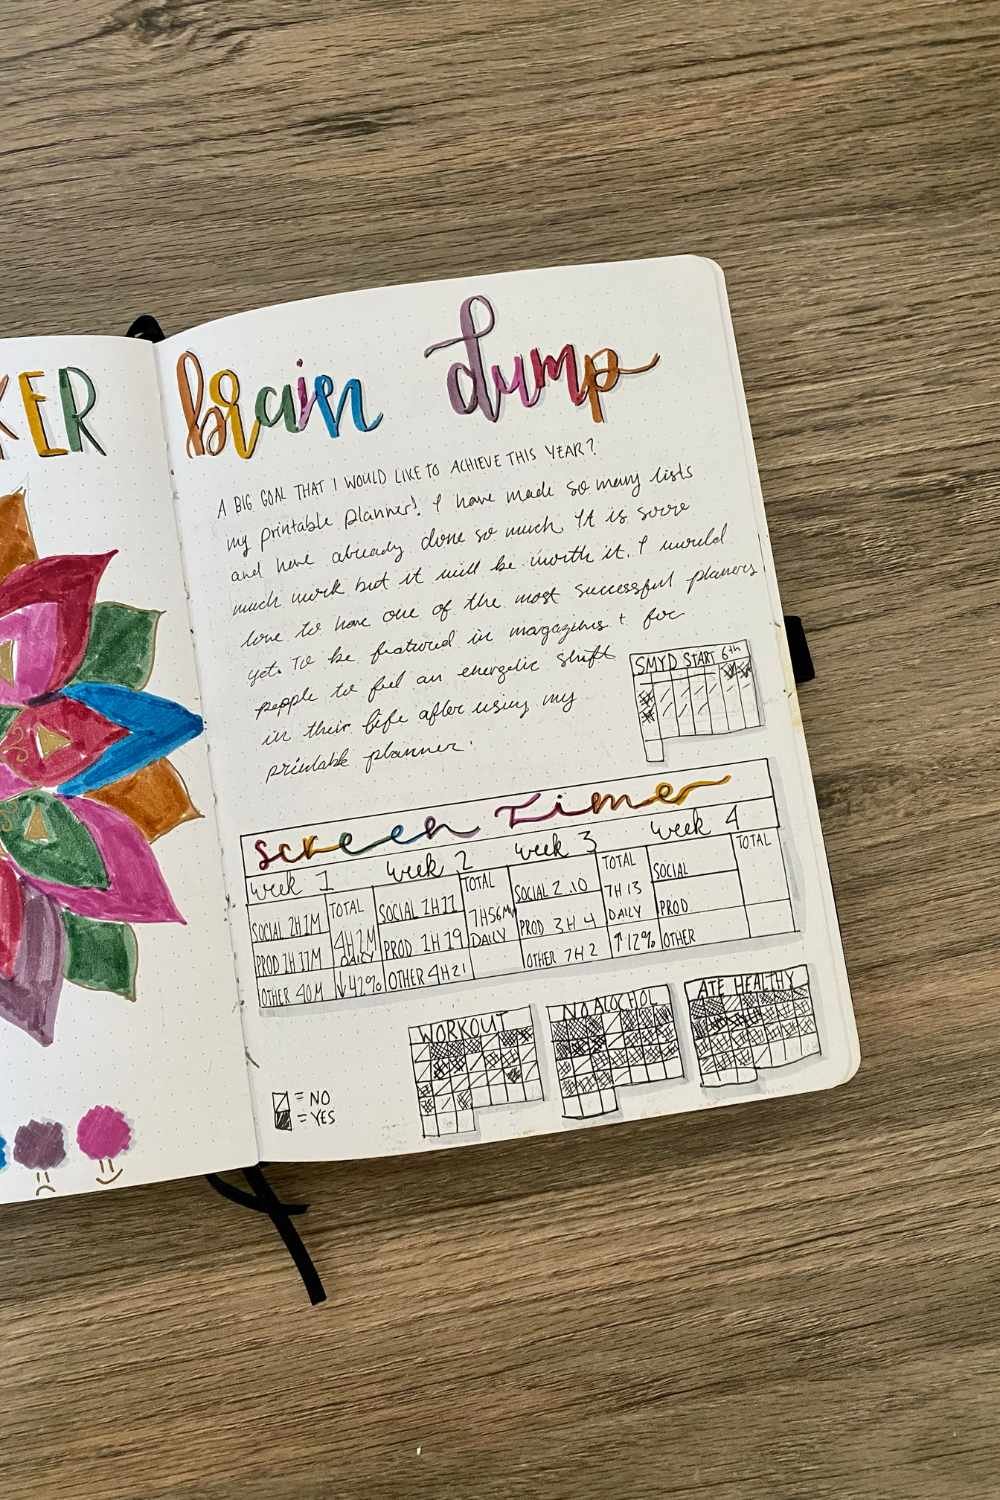 KER
brain dump
A BIG GOAL THAT I WOULD LIKE TO ACHIEVE THIS YEAR?
my printable planner! I have made so many lists
and have already done so much. It is sooo
much work but it will be worth it. I would
love to have one of the most successful planners
yet. To be featured in magazines + for
people to feel an energetic shift
in their life after using my
printable planner.
SMYD START 6th
Screen Timer
week 1 week 2 week 3 week 4
SOCIAL 2H 1M
PROD 1H 17M
OTHER 40M
TOTAL
4H 2M
DAILY
↓42%
SOCIAL 1H 11
PROD 1H 19
OTHER 4H21
TOTAL
7H56M
DAILY
SOCIAL 2.10
PROD 3H 4
OTHER 7H2
TOTAL
7H 13
DAILY
↑12%
SOCIAL
PROD
OTHER
TOTAL
WORKOUT
NO ALOCHOL
ATE HEALTHY
= NO
= YES